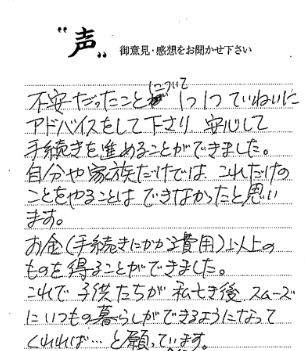 "声" 御意見・感想をお聞かせ下さい
不安だったことについて1つ1つていねいに
アドバイスをして下さり 安心して
手続きを進めることができました。
自分や家族だけでは これだけの
ことをやることは できなかったと思い
ます。
お金(手続きにかかる費用)以上の
ものを得ることができました。
これで 子供たちが 私亡き後 スムーズ
に いつもの暮らしができるようになって
くれれば… と願っています。